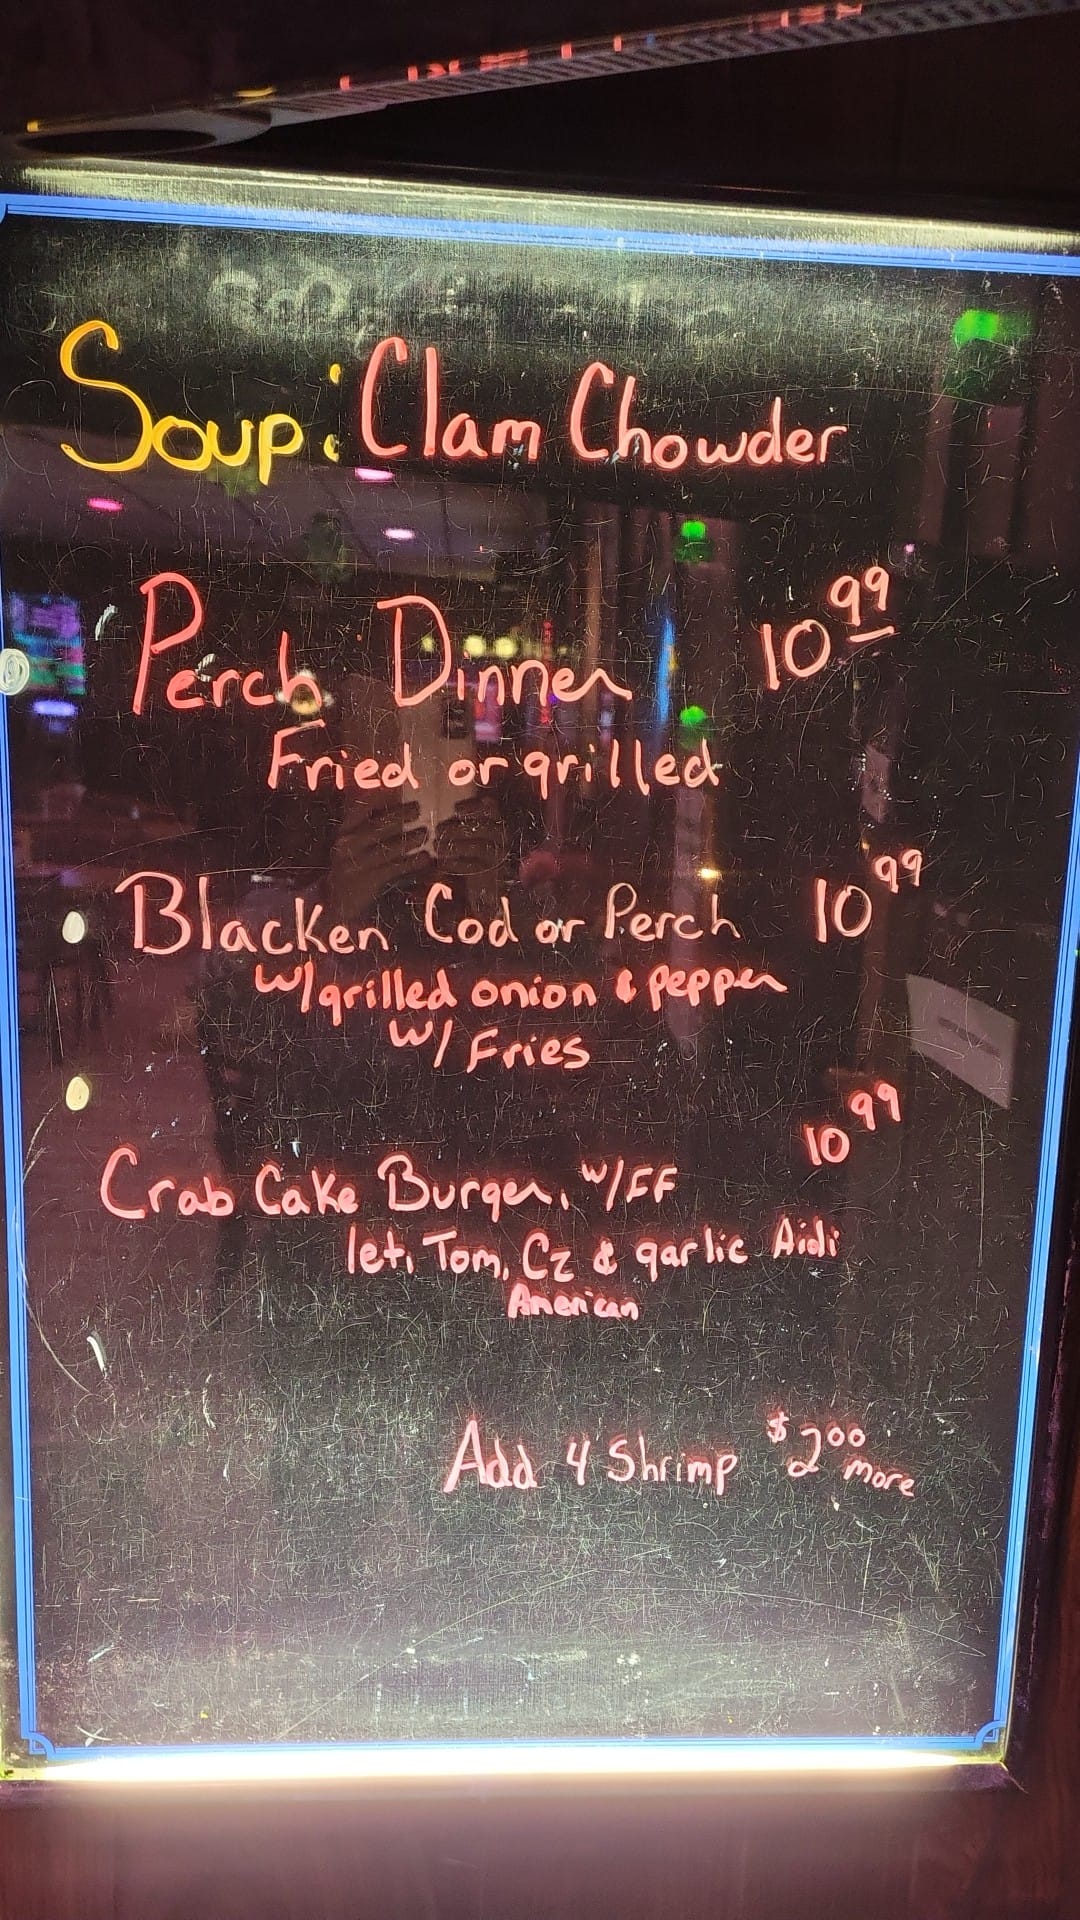 Soup: Clam Chowder
Perch Dinner 10 99
Fried or grilled
Blacken Cod or Perch 10 99
w/grilled onion & pepper
w/ Fries
10 99
Crab Cake Burger, w/FF
let, Tom, Cz & garlic Aioli
American
Add 4 Shrimp $2 00 more